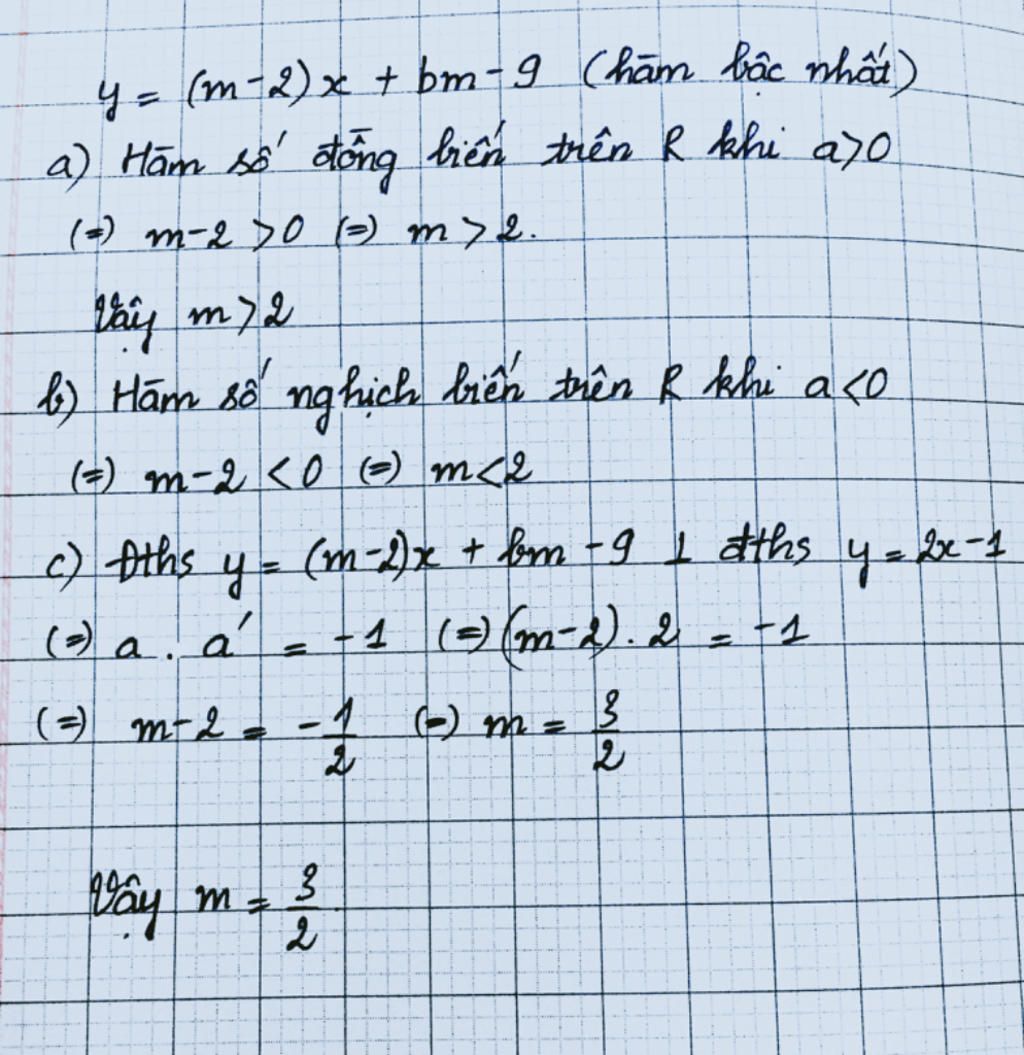 y = (m-2)x + bm - 9 (hàm bậc nhất)
a) Hàm số đồng biến trên R khi a>0
(=) m-2 >0 (=) m > 2.
Vậy m>2
b) Hàm số nghịch biến trên R khi a<0
(=) m-2 <0 (=) m<2
c) Đths y = (m-2)x + bm - 9 ⊥ đths y = 2x-1
(=) a . a' = -1 (=) (m-2). 2 = -1
(=) m-2 = -1/2 (=) m = 3/2
Vậy m = 3/2.